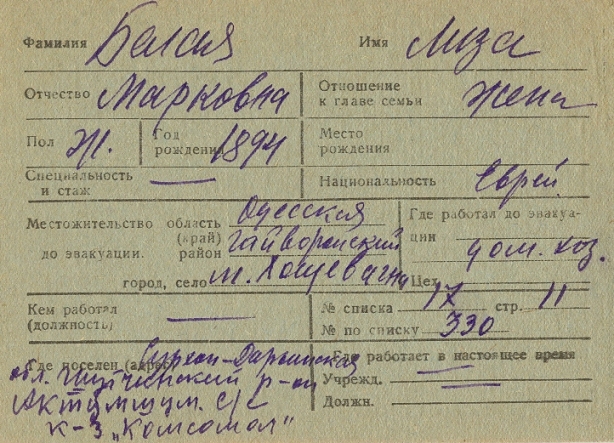 Фамилия Белая Имя Лиза
Отчество Марковна Отношение к главе семьи жена
Пол Ж. Год рождения 1894 Место рождения
Специальность и стаж — Национальность Еврей
Местожительство до эвакуации. область (край) Одесская Где работал до эвакуации
район Гайворонский дом. хоз.
город, село м. Хощеватна Цех
Кем работал (должность) — № списка 17 стр. 11
№ по списку 330
Где поселен (адрес) Сурхан-Дарьинская Где работает в настоящее время
обл. р-он Учрежд. —
с/с Должн. —
к-з „Комсомол"